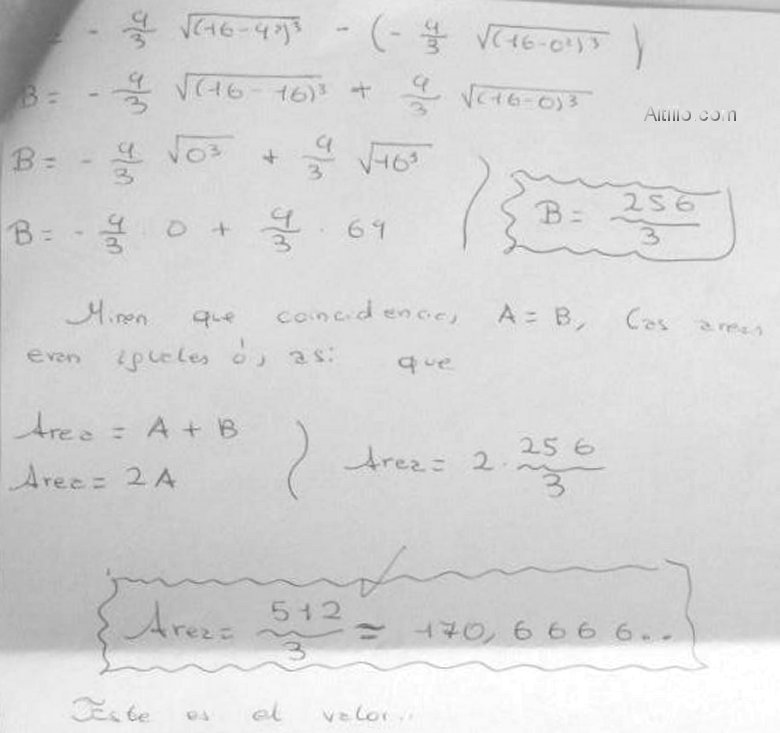 = - 4/3 √(16-4²)³ - (- 4/3 √(16-0²)³ )
B = - 4/3 √(16-16)³ + 4/3 √(16-0)³
Altillo.com
B = - 4/3 √0³ + 4/3 √16³
B = - 4/3 . 0 + 4/3 . 64
B = 256/3
Miren que coincidencia, A = B, las areas
eran iguales ó, asi que
Area = A + B
Area = 2A
Area = 2 . 256/3
Area = 512/3 ≅ 170,6666...
Este es el valor..